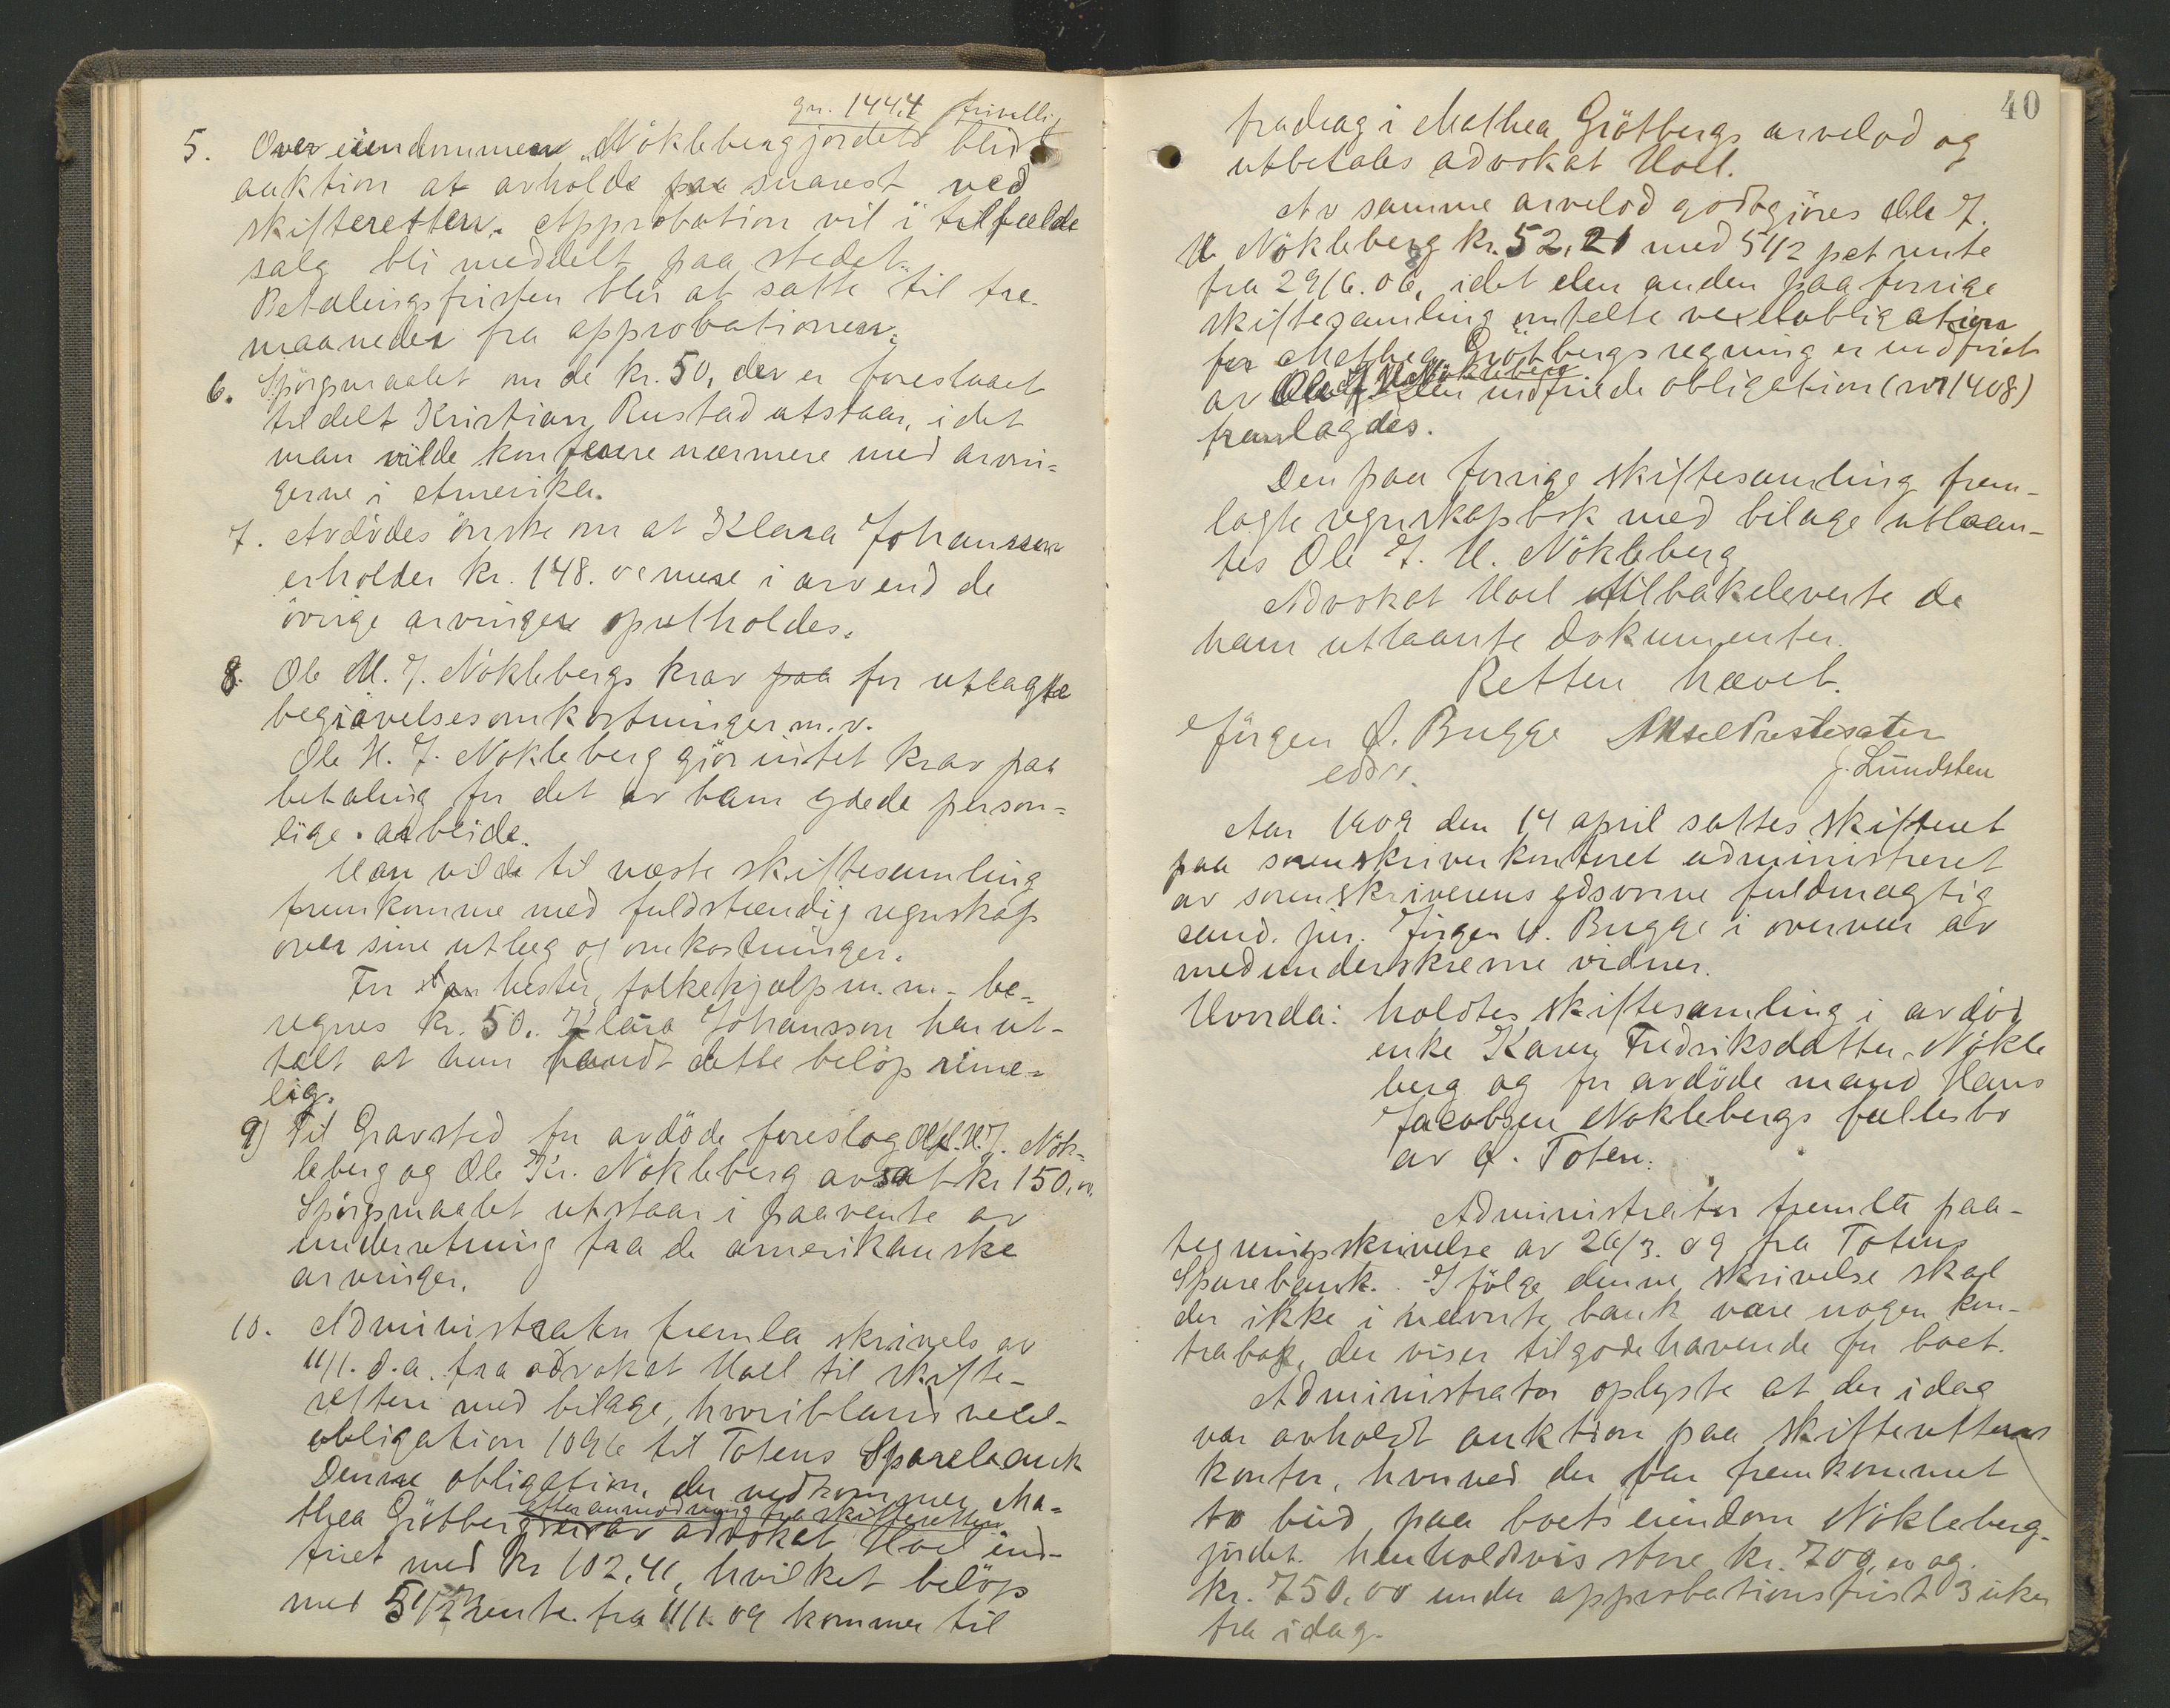 gn. 144.4 frivillig
5. Over eiendommen "Nökleberggjordet" blir
auktion at avholde paa snarest ved
skifteretten. Approbation vil i tilfælde
salg bli meddelt paa stedet.
Betalingsfristen blir at sætte til tre
maaneder fra approbationen.
6. Spörgsmaalet om de kr. 50, der er foreslaaet
tildelt Kristian Rustad utstaar, idet
man vilde konferere nærmere med arvin-
gerne i Amerika.
7. Avdödes önske om at Klara Johansson
erholder kr. 148. mere i arv end de
övrige arvinger opretholdes.
8. Ole H. J. Nöklebergs krav paa for utlagte
begravelsesomkostninger m.v.
Ole H. J. Nökleberg gjör intet krav paa
betaling for det av ham ydede person-
lige arbeide.
Han vilde til næste skiftesamling
fremkomme med fuldstændig regnskap
over sine utlæg og omkostninger.
For hester, folkehjælp m.m. be-
regnes kr. 50. Klara Johansson har ut-
talt at hun fandt dette belöp rime-
lig.
9) Til Gravsted for avdöde foreslog Ole H. J. Nök-
leberg og Ole Kr. Nökleberg avsat kr 150,00.
Spörgsmaalet utstaar i paavente av
underretning fra de amerikanske
arvinger.
10. Administrator fremla skrivels av
11/1. d.a. fra advokat Hoel til skifte-
retten med bilage, hvoriblandt vexel-
obligation 1096 til Totens Sparebank
Denne obligation, der vedkommer Ma-
efter anmodning fra skifteretten
thea Grötberg er av advokat Hoel ind-
friet med kr 102,41, hvilket belöp
med 5 1/2 % rente fra 11/1 09 kommer til
40
fradrag i Mathea Grötbergs arvelod og
utbetales advokat Hoel.
Av samme arvelod godtgjöres Ole J.
H. Nökleberg kr. 52,21 med 5 1/2 pct rente
fra 29/6.06, idet den anden paa forrige
skiftesamling omtelte vexelobligation
for Mathea Grötbergs regning er indfriet
Ole J. H. Nökleberg
av Den indfriede obligation (nr 1408)
fremlagdes.
Den paa forrige skiftesamling frem-
lagte regnskapsbok med bilage utlaan-
tes Ole J. H. Nökleberg
Advokat Hoel tilbakeleverte de
ham utlaante dokumenter.
Retten hævet.
Jörgen Ø. Bugge Aksel Præstesæter
edsv. J. Lundsten
Aar 1909 den 14 april sattes skifteret
paa sorenskriverkontoret administreret
av sorenskriverens edsvorne fuldmægtig
cand. jur. Jörgen Ø. Bugge i overvær av
medunderskrevne vidner.
Hvorda: holdtes skiftesamling i avdöd
enke Karen Fredriksdatter Nökle
berg og for avdöde mand Hans
Jacobsen Nöklebergs fællesbo
av Ø. Toten.
Administrator fremla paa-
tegningsskrivelse av 26/3. 09 fra Totens
Sparebank. Ifölge denne skrivelse skal
der ikke i nævnte bank være nogen kon-
trabok, der viser tilgodehavende for boet.
Administrator oplyste at der idag
var avholdt auktion paa skifterettens
kontor, hvorved der var fremkommet
to bud paa boets eiendom Nökleberg-
jordet henholdsvis store kr. 709,00 og
kr. 750,00 under approbationsfrist 3 uker
fra idag.